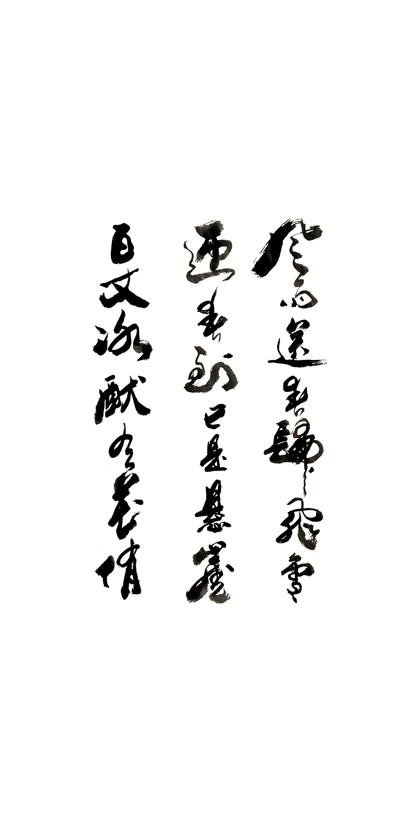 风雨送春歸飛雪
迎春到已是懸崖
百丈冰猷有花俏